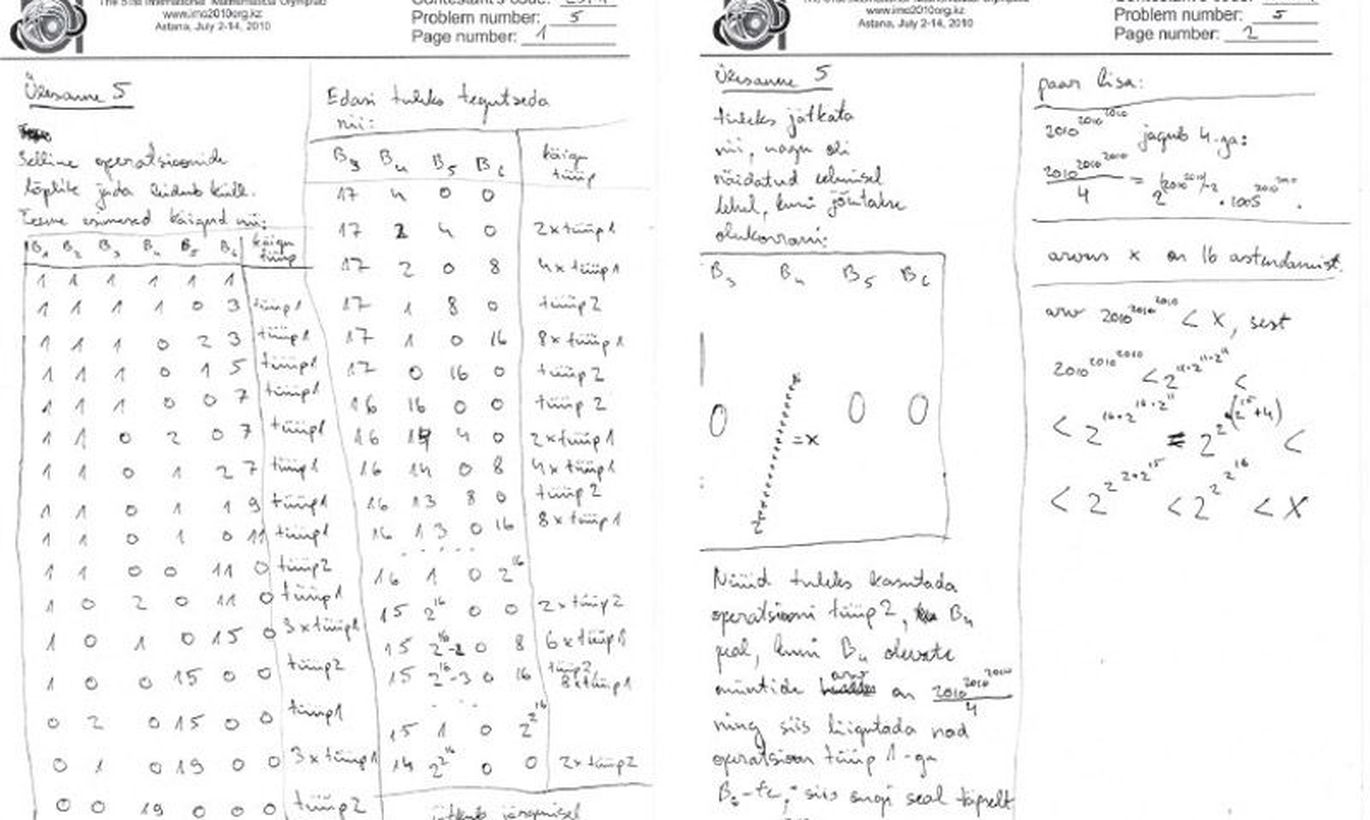 The 51st International Mathematical Olympiad
www.imo2010org.kz
Astana, July 2-14, 2010
Problem number: 5
Page number: 1
Ülesanne 5
Selline operatsioonide
lõplik jada leidub küll.
Teeme esimesed käigud nii:
B1 B2 B3 B4 B5 B6 käigu tüüp
1 1 1 1 1 1
1 1 1 1 0 3 tüüp1
1 1 1 0 2 3 tüüp1
1 1 1 0 1 5 tüüp1
1 1 1 0 0 7 tüüp1
1 1 0 2 0 7 tüüp1
1 1 0 1 2 7 tüüp1
1 1 0 1 1 9 tüüp1
1 1 0 1 0 11 tüüp1
1 1 0 0 11 0 tüüp2
1 0 2 0 11 0 tüüp1
1 0 1 0 15 0 3×tüüp1
1 0 0 15 0 0 tüüp2
0 2 0 15 0 0 tüüp1
0 1 0 19 0 0 3×tüüp1
0 0 19 0 0 0 tüüp2
Edasi tuleks tegutseda
nii:
B3 B4 B5 B6 käigu tüüp
17 4 0 0
17 2 4 0 2×tüüp1
17 2 0 8 4×tüüp1
17 1 8 0 tüüp2
17 1 0 16 8×tüüp1
17 0 16 0 tüüp2
16 16 0 0 tüüp2
16 14 4 0 2×tüüp1
16 14 0 8 4×tüüp1
16 13 8 0 tüüp2
16 13 0 16 8×tüüp1
.....
16 1 0 2^16
15 2^16 0 0 2×tüüp2
15 2^16-2 0 8 6×tüüp1
15 2^16-3 0 16 tüüp2 8×tüüp1
...
15 1 0 2^2^16
14 2^2^16 0 0 2×tüüp2
jätkub järgmisel
www.imo2010org.kz
Astana, July 2-14, 2010
Problem number: 5
Page number: 2
Ülesanne 5
tuleks jätkata
nii, nagu oli
näidatud eelmisel
lehel, kuni jõutakse
olukorrani:
B3 B4 B5 B6
0 2 =x 0 0
Nüüd tuleks kasutada
operatsiooni tüüp2, B4
peal, kuni B4 olevate
müntide arv on 2010^2010^2010/4
ning siis liigutada nad
operatsioon tüüp 1-ga
siis ongi seal täpselt
paar lisa:
2010^2010^2010 jagub 4-ga:
2010^2010^2010/4 = 2^(2010^2010)-2 · 1005^2010^2010.
arvus x on 16 astendamist.
arv 2010^2010^2010 < X, sest
2010^2010^2010 < 2^11·2^11·2^11 <
< 2^16·2^16·2^11 = 2^2^(2^15+4) <
< 2^2^2·2^15 < 2^2^2^16 < X